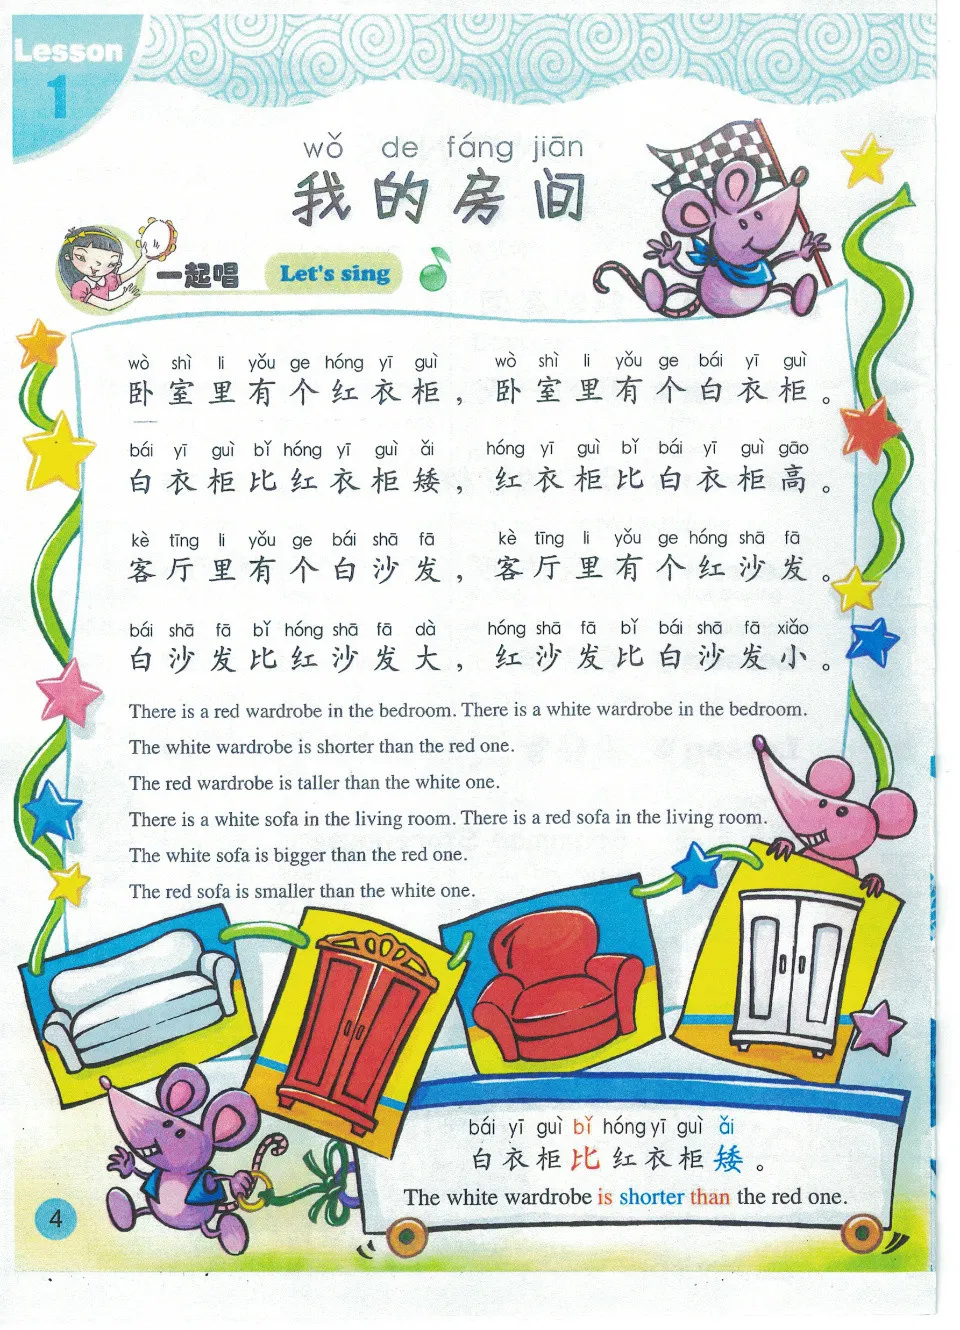 Lesson
1
wǒ de fáng jiān
我的房间
一起唱 Let's sing
wò shì li yǒu ge hóng yī guì wò shì li yǒu ge bái yī guì
卧室里有个红衣柜，卧室里有个白衣柜。
bái yī guì bǐ hóng yī guì ǎi hóng yī guì bǐ bái yī guì gāo
白衣柜比红衣柜矮，红衣柜比白衣柜高。
kè tīng li yǒu ge bái shā fā kè tīng li yǒu ge hóng shā fā
客厅里有个白沙发，客厅里有个红沙发。
bái shā fā bǐ hóng shā fā dà hóng shā fā bǐ bái shā fā xiǎo
白沙发比红沙发大，红沙发比白沙发小。
There is a red wardrobe in the bedroom. There is a white wardrobe in the bedroom.
The white wardrobe is shorter than the red one.
The red wardrobe is taller than the white one.
There is a white sofa in the living room. There is a red sofa in the living room.
The white sofa is bigger than the red one.
The red sofa is smaller than the white one.
bái yī guì bǐ hóng yī guì ǎi
白衣柜比红衣柜矮。
The white wardrobe is shorter than the red one.
4